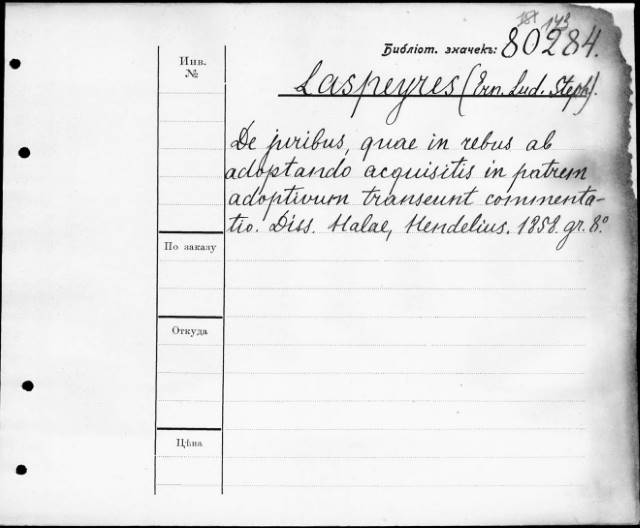 143
Библіот. значекъ: 80284.
Инв.
№
Laspeyres (Ern. Lud. Steph).
De juribus, quae in rebus ab
adoptando acquisitis in patrem
adoptivum transeunt commenta-
tio. Diss. Halae, Hendelius. 1858. gr. 8.º
По заказу
Откуда
Цѣна